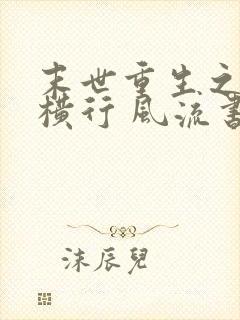 末世重生之
横行风流书
沫辰兒